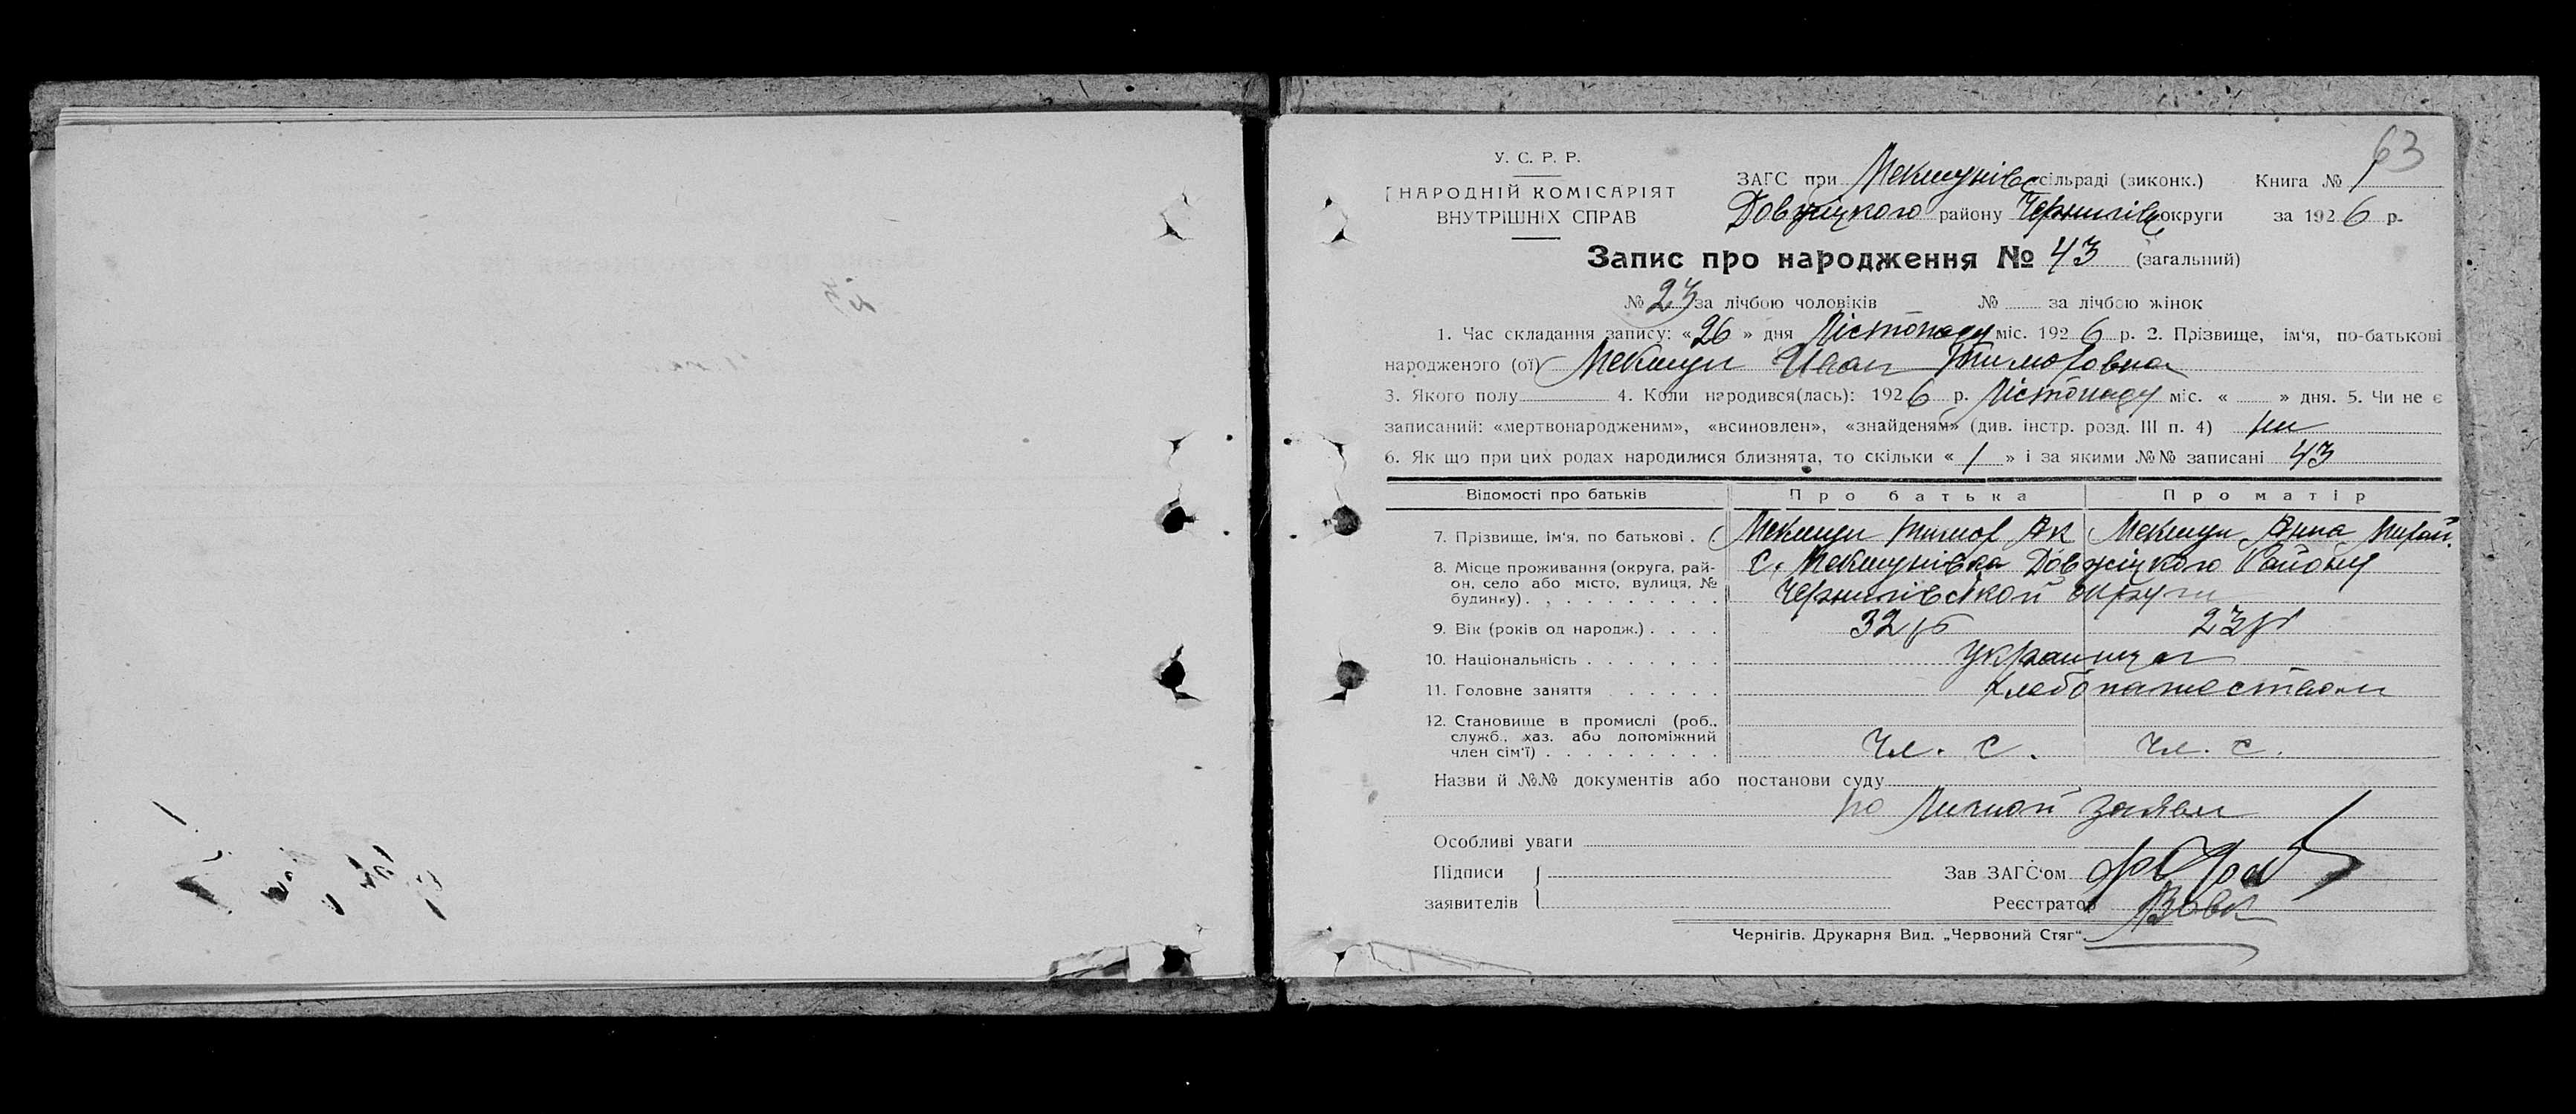 63
У. С. Р. Р.
НАРОДНІЙ КОМІСАРІЯТ
ВНУТРІШНІХ СПРАВ
ЗАГС при Мекшунівс сільраді (зиконк.) Книга № 1
Довжіцкого району Чернигівс округи за 1926 р.
Запис про народження № 43 (загальний)
№ 23 за лічбою чоловіків № за лічбою жінок
1. Час складання запису: «26» дня Лістопаду міс. 1926 р. 2. Прізвище, ім'я, по-батькові
народженого (ої) Мекшун Иван Тимофовна
3. Якого полу 4. Коли народився(лась): 1926 р. Лістопаду міс. « » дня. 5. Чи не є
записаний: «мертвонародженим», «всиновлен», «знайденям» (див. інстр. розд. III п. 4) ни
6. Як що при цих родах народилися близнята, то скільки «1» і за якими №№ записані 43
Відомості про батьків Про батька Про матір
7. Прізвище, ім'я, по батькові . Мекшун Тимоф Ак Мекшун Анна
8. Місце проживання (округа, рай-
он, село або місто, вулиця, №
будинку) . . . . . . . . . .
с. Мекшунівка Довжіцкого Району
Чернигівской округи
9. Вік (років од народж.) . . . . 32 23
10. Національність . . . . . . . украинцы
11. Головне заняття . . . . . хлебопашеством
12. Становище в промислі (роб.,
служб., хаз. або допоміжний
член сім'ї) . . . . . . . . . Чл. с. Чл. с.
Назви й №№ документів або постанови суду
по Личной заявл
Особливі уваги
Підписи Зав ЗАГС'ом
заявителів Реєстратор Вовк
Чернігів. Друкарня Вид. „Червоний Стяг".